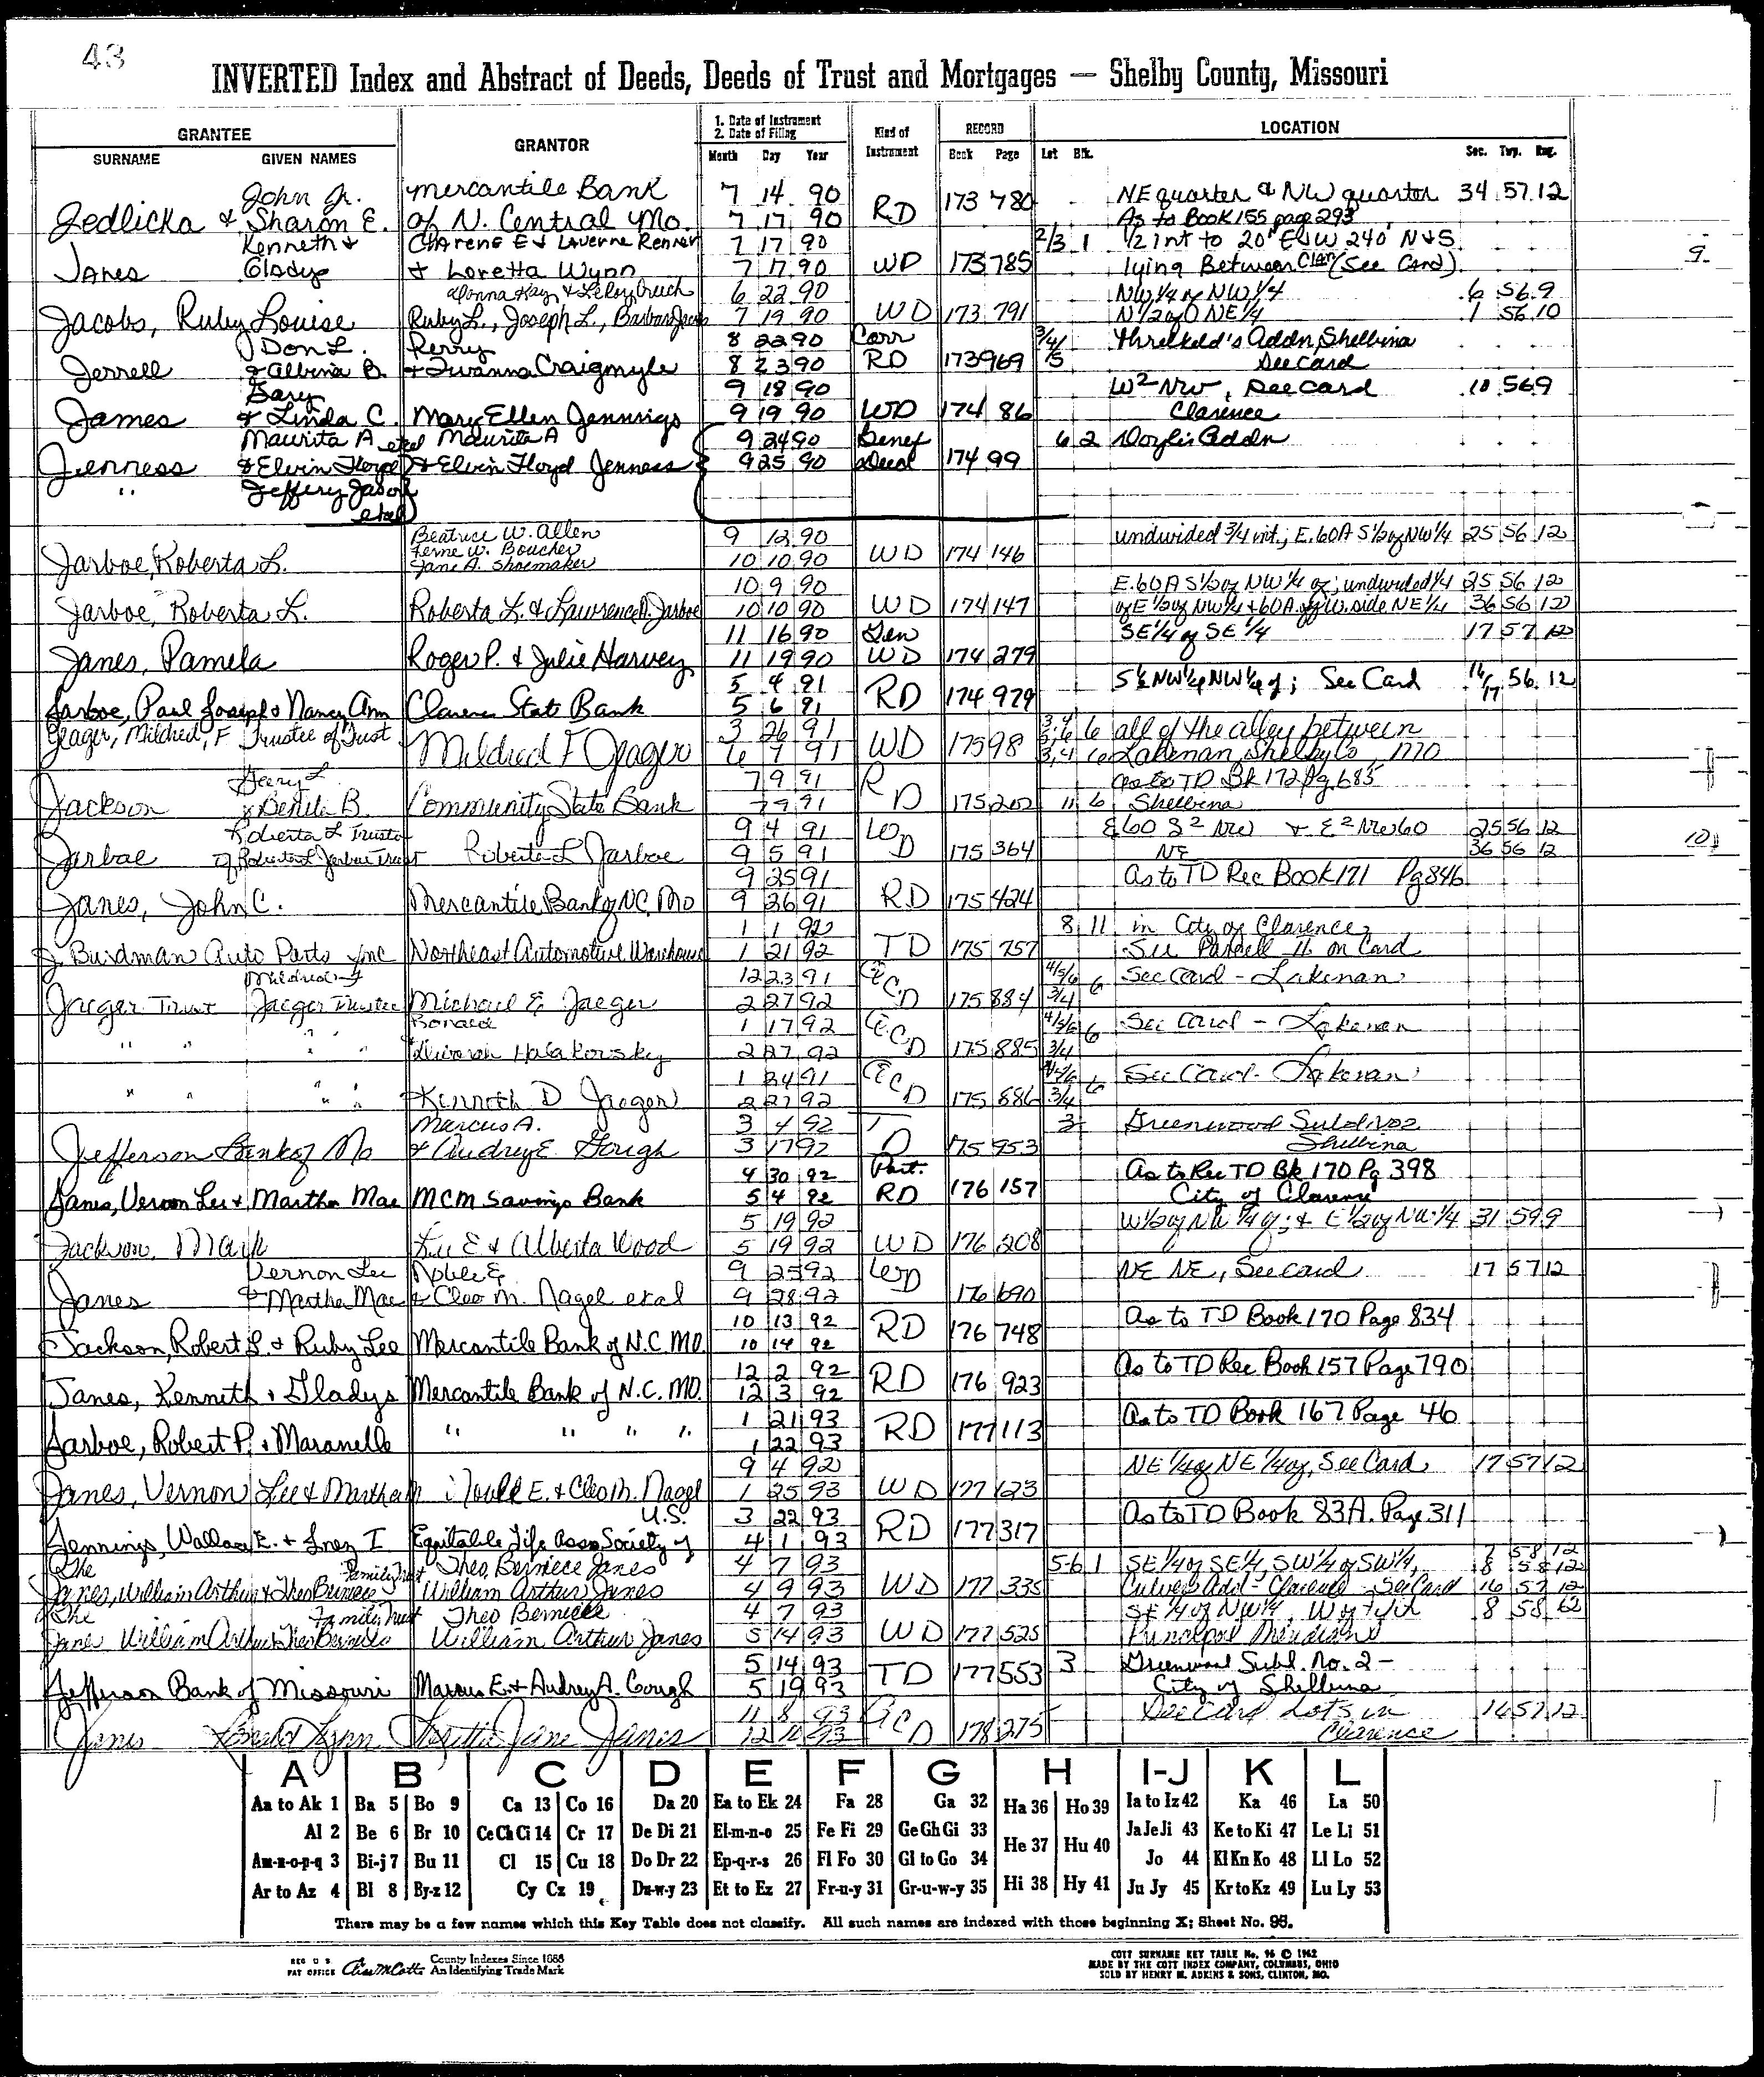 43
INVERTED Index and Abstract of Deeds, Deeds of Trust and Mortgages — Shelby County, Missouri
GRANTEE
SURNAME GIVEN NAMES
GRANTOR
1. Date of Instrument
2. Date of Filing
Month Day Year
Kind of Instrument
RECORD
Book Page
Lot Blk.
LOCATION
Sec. Twp. Rng.
John Jr. Mercantile Bank 7 14 90 NE quarter & NW quarter 34 57 12
Jedlicka & Sharon E. of N. Central Mo. 7 17 90 RD 173 780 As to Book 155 page 293
Kenneth & Clarene E & Laverne Renner 7 17 90 2/3 1 1/2 Int to 20' E&W 240' N&S
Janes Gladys & Loretta Wynn 7 17 90 WD 173 785 lying Between (See Card)
Donna Kay & LeRoy 6 22 90 NW 1/4 of NW 1/4 6 56 9
Jacobs, Ruby Louise Ruby L., Joseph L., Barbara Jacobs 7 19 90 WD 173 791 N 1/2 of NE 1/4 1 56 10
Don L. Perry 8 22 90 Corr 3/4/ Threlkeld's Addn, Shelbina
Jerrell & Albina B. & Twanna Craigmyle 8 23 90 RD 173 969 5 See Card
Gary 9 18 90 W2 NW, See card 10 56 9
James & Linda C. Mary Ellen Jennings 9 19 90 WD 174 86 Clarence
Maurita A etal Maurita A 9 24 90 Benef 6 2 Doyle's Addn
Jenness & Elvin Floyd & Elvin Floyd Jenness 9 25 90 Deed 174 99
" Jeffery Jason
etal
Beatrice W. Allen
Ferne W. Boucher 9 12 90 undivided 3/4 int.; E. 60A S 1/2 of NW 1/4 25 56 12
Jarboe, Roberta L. Jane A. Shoemaker 10 10 90 WD 174 146
10 9 90 E. 60A S 1/2 of NW 1/4 of; undivided 1/4 25 56 12
Jarboe, Roberta L. Roberta L. & Lawrence D. Jarboe 10 10 90 WD 174 147 of E 1/2 of NW 1/4 + 60A. off W. side NE 1/4 36 56 12
11 16 90 Gen SE 1/4 of SE 1/4 17 57 12
Janes, Pamela Roger P. & Julie Harvey 11 19 90 WD 174 279
5 4 91 S 1/2 NW 1/4 NW 1/4 of; See Card 16/17 56 12
Jarboe, Paul Joseph & Nancy Ann Clarence State Bank 5 6 91 RD 174 979
Jeager, Mildred, F Trustee of Trust 3 26 91 6 all of the alley between
Mildred F Jeager 6 7 91 WD 175 98 3,4 6 Lakenan, Shelby Co
Gary L 7 9 91 As to TD Bk 172 Pg 685
Jackson & Denita B. Community State Bank 7 9 91 RD 175 202 11 6 Shelbina
Roberta L Trustee 9 4 91 E60 S2 NW & E2 NW 60 25 56 12
Jarboe of Roberta L Jarboe Trust Roberta L Jarboe 9 5 91 WD 175 364 NE 36 56 12
9 25 91 As to TD Rec Book 171 Pg 846
Janes, John C. Mercantile Bank of NC, Mo 9 26 91 RD 175 424
1 1 92 8 11 in City of Clarence
J. Burdman Auto Parts Inc Northeast Automotive Warehouse 1 21 92 TD 175 757 See Parcell II on Card
Mildred F 12 23 91 4/5/6 See Card - Lakenan
Jaeger Trust Jaeger Trustee Michael E Jaeger 2 27 92 QCD 175 884 3/4 6
Ronald 1 17 92 4/5/6 See Card - Lakenan
" " " " Deborah Halakovsky 2 27 92 QCD 175 885 3/4 6
1 24 91 4/5/6 See Card - Lakenan
" " " " Kenneth D Jaeger 2 27 92 QCD 175 886 3/4 6
Marcus A. 3 4 92 3 Greenwood Subd No 2
Jefferson Bank of Mo & Audrey E Gough 3 17 92 TD 175 953 Shelbina
4 30 92 Part. As to Rec TD Bk 170 Pg 398
Janes, Vernon Lee & Martha Mae MCM Savings Bank 5 4 92 RD 176 157 City of Clarence
5 19 92 W 1/2 of NW 1/4 of; & E 1/2 of NW 1/4 31 59 9
Jackson, Mark Lee E & Alberta Wood 5 19 92 WD 176 208
Vernon Lee Noble E 9 25 92 NE NE, See card 17 57 12
Janes & Martha Mae & Cleo M. Nagel etal 9 28 92 WD 176 690
10 13 92 As to TD Book 170 Page 834
Jackson, Robert L. & Ruby Lee Mercantile Bank of N.C. MO. 10 14 92 RD 176 748
12 2 92 As to TD Rec Book 157 Page 790
Janes, Kenneth & Gladys Mercantile Bank of N.C. MO. 12 3 92 RD 176 923
1 21 93 As to TD Book 167 Page 46
Jarboe, Robert P. & Maranelle " " " " 1 22 93 RD 177 113
9 4 92 NE 1/4 of NE 1/4 of, See Card 17 57 12
Janes, Vernon Lee & Martha M Noble E. & Cleo M. Nagel 1 25 93 WD 177 123
U.S. 3 22 93 As to TD Book 83A. Page 311
Jennings, Wallace E. & Inez I Equitable Life Assn Society of 4 1 93 RD 177 317
The Family Trust Theo Berniece Janes 4 7 93 5-6 1 SE 1/4 of SE 1/4, SW 1/4 of SW 1/4, 7 58 12 8 58 12
Janes, William Arthur & Theo Berniece William Arthur Janes 4 9 93 WD 177 335 Culvers Add - Clarence - See Card 16 57 12
The Family Trust Theo Berniece 4 7 93 SE 1/4 of NW 1/4, W of 8 58 12
Janes William Arthur & Theo Berniece William Arthur Janes 5 14 93 WD 177 525 Principal Meridian
5 14 93 3 Greenwood Subd. No. 2 -
Jefferson Bank of Missouri Marcus E. & Audrey A. Gough 5 19 93 TD 177 553 City of Shelbina
11 8 93 See Card Lots in 16 57 12
Janes Ronald Lynn Loretta Jane Janes 12 10 93 QCD 178 275 Clarence
9.
10
A B C D E F G H I-J K L
Aa to Ak 1 Ba 5 Bo 9 Ca 13 Co 16 Da 20 Ea to Ek 24 Fa 28 Ga 32 Ha 36 Ho 39 Ia to Iz 42 Ka 46 La 50
Al 2 Be 6 Br 10 Ce Ch Ci 14 Cr 17 De Di 21 El-m-n-o 25 Fe Fi 29 Ge Gh Gi 33 He 37 Hu 40 Ja Je Ji 43 Ke to Ki 47 Le Li 51
Am-n-o-p-q 3 Bi-j 7 Bu 11 Cl 15 Cu 18 Do Dr 22 Ep-q-r-s 26 Fl Fo 30 Gl to Go 34 Jo 44 Kl Kn Ko 48 Ll Lo 52
Ar to Az 4 Bl 8 By-z 12 Cy Cz 19 Du-w-y 23 Et to Ez 27 Fr-u-y 31 Gr-u-w-y 35 Hi 38 Hy 41 Ju Jy 45 Kr to Kz 49 Lu Ly 53
There may be a few names which this Key Table does not classify. All such names are indexed with those beginning X; Sheet No. 96.
REG U S PAT OFFICE
County Indexes Since 1888
An Identifying Trade Mark
COTT SURNAME KEY TABLE No. 96 © 1962
MADE BY THE COTT INDEX COMPANY, COLUMBUS, OHIO
SOLD BY HENRY M. ADKINS & SONS, CLINTON, MO.